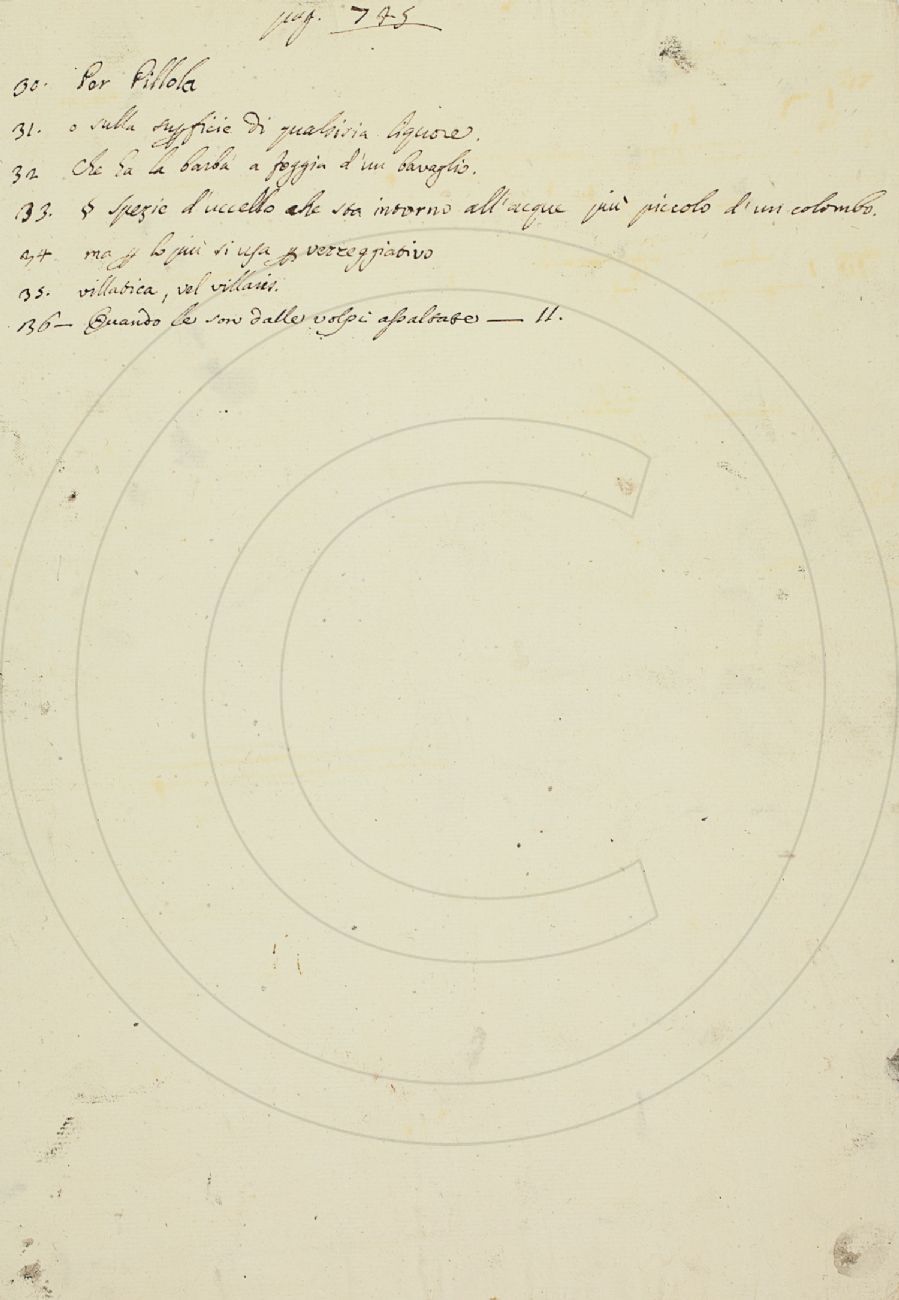 pag. 745
30. Per Pillola
31. o sulla supficie di qualsisia liquore.
32 Che ha la barba a foggia d'un bavaglio.
33. § Spezie d'uccello che sta intorno all'acque più piccolo d'un colombo.
34. ma p lo più si usa p vezzeggiativo
35. villatica, vel villaris.
136— Quando le son dalle volpi assaltate — 11.